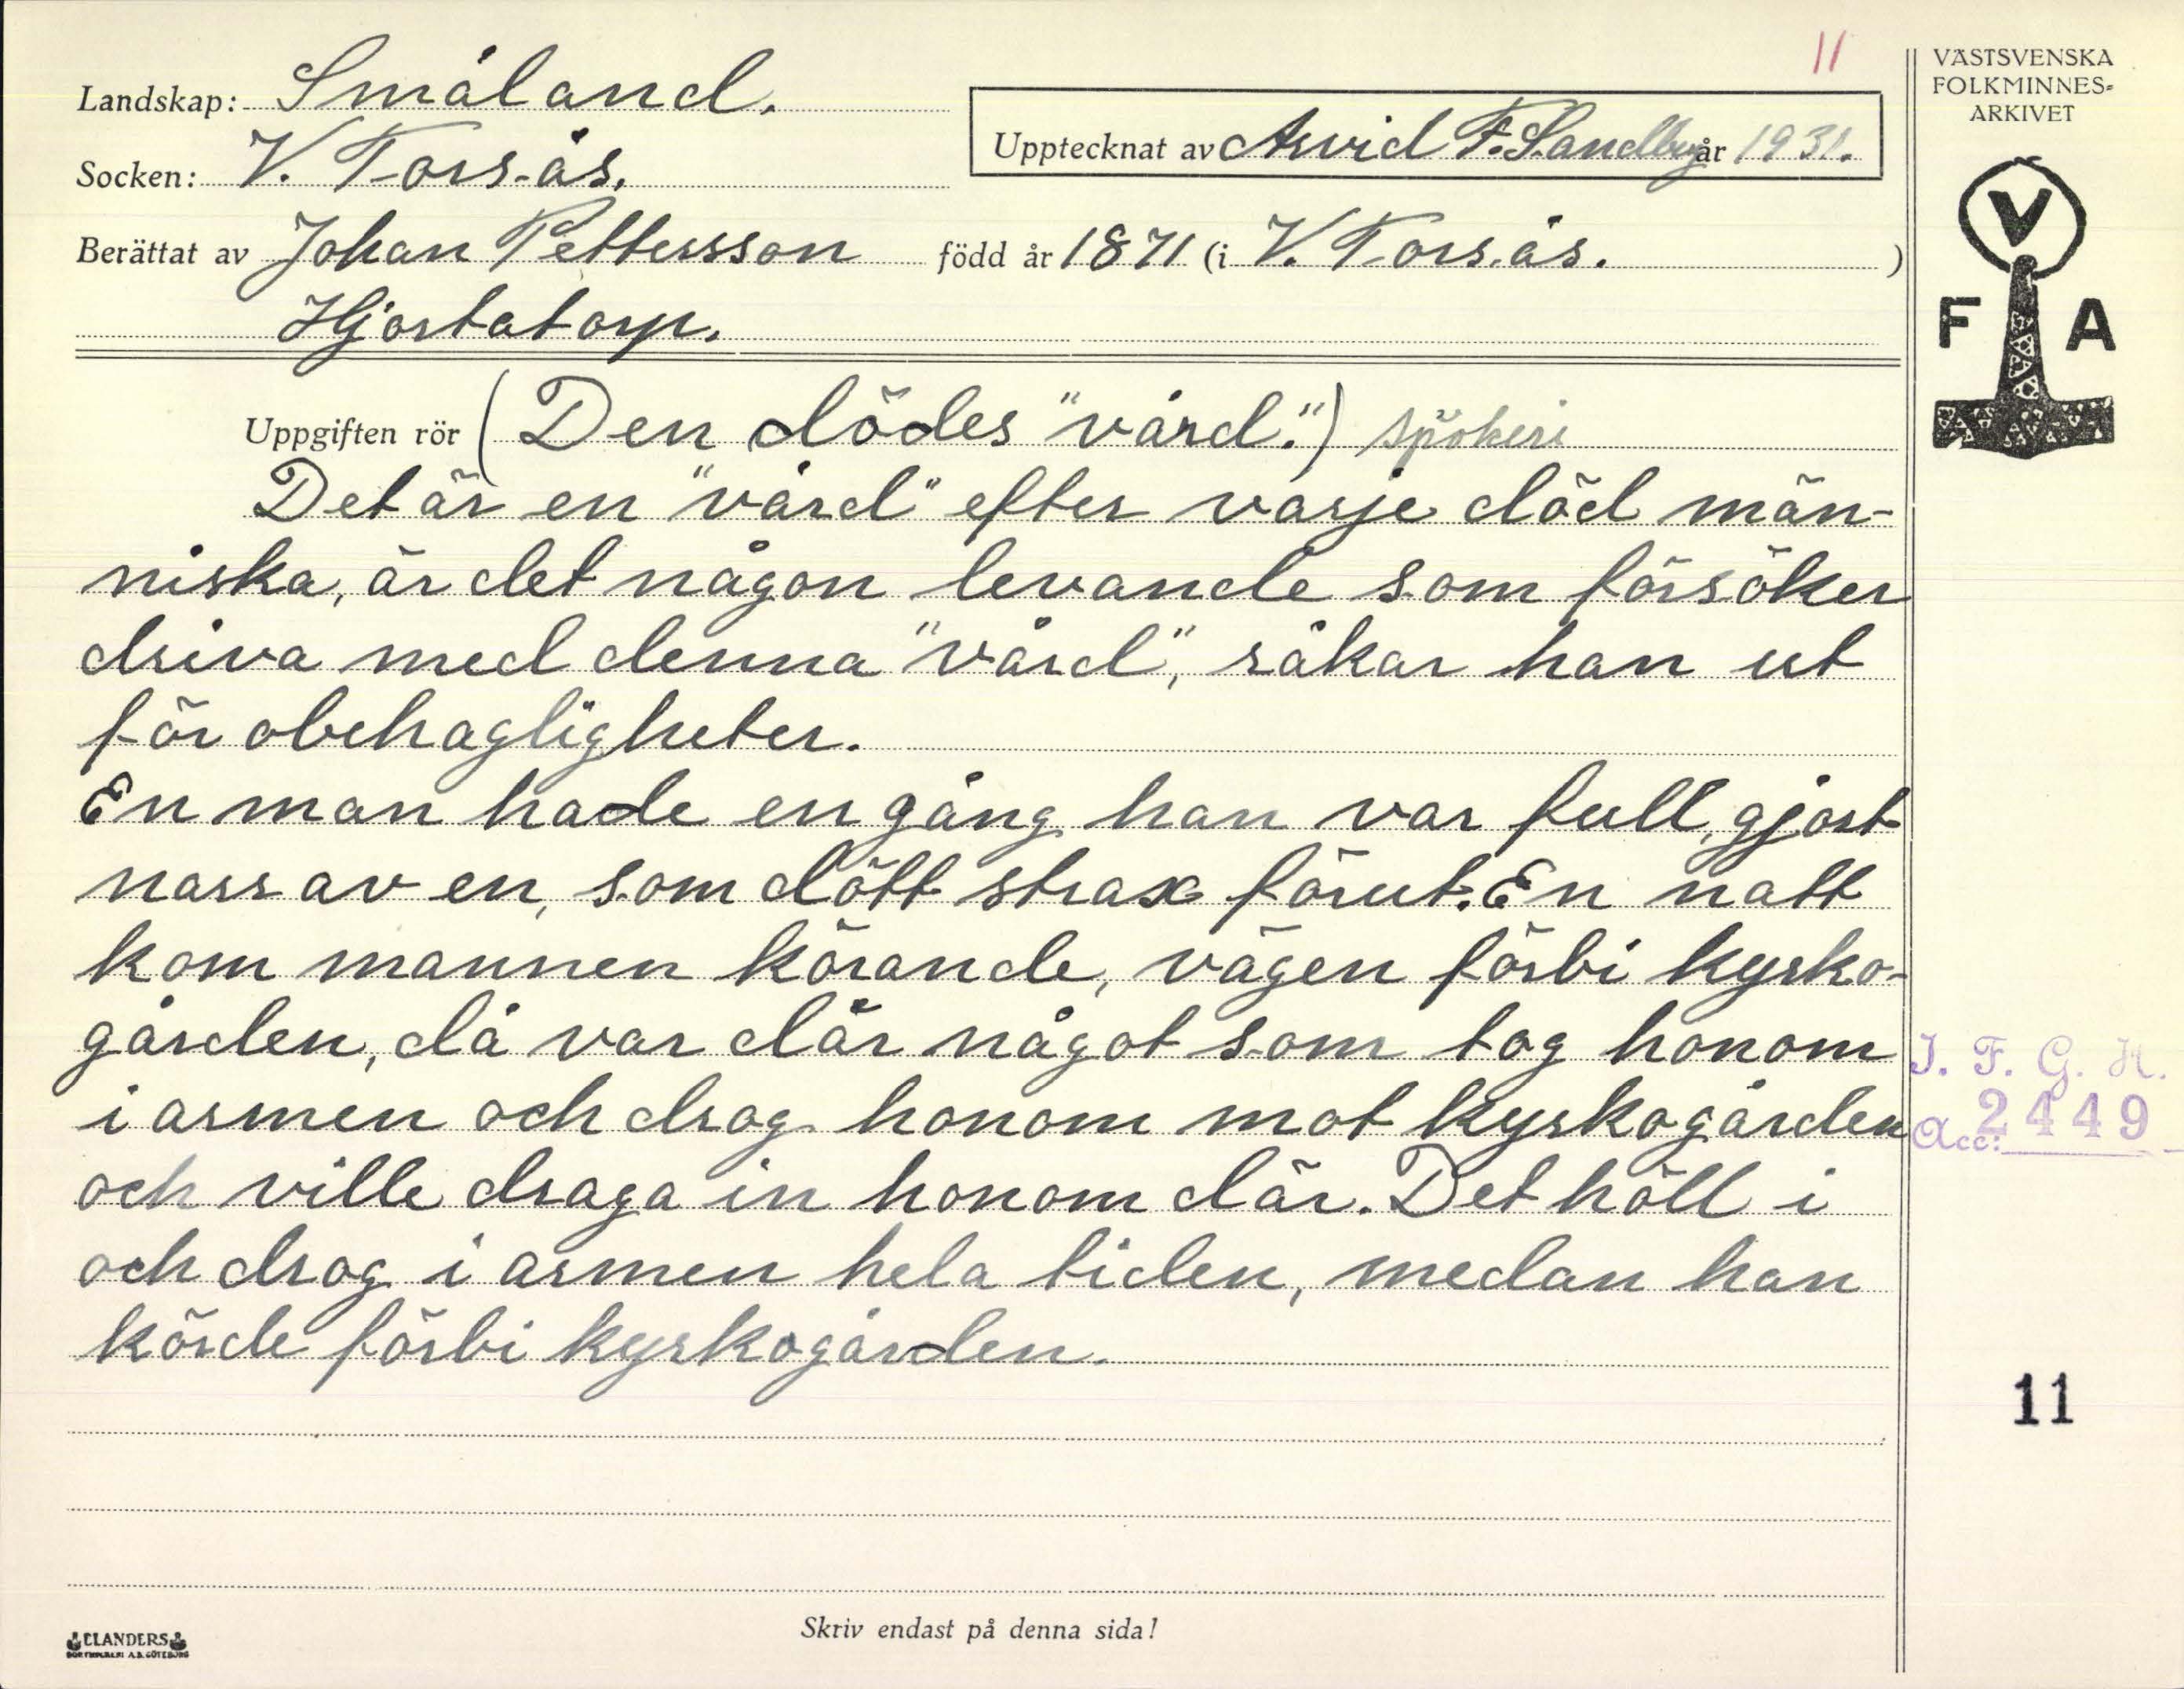 11
VÄSTSVENSKA
FOLKMINNES-
ARKIVET
Landskap: Småland.
Upptecknat av Arvid F. Sandberg år 1931.
Socken: V. Torsås.
Berättat av Johan Pettersson född år 1871 (i V. Torsås. )
Hjortatorp.
V
F A
Uppgiften rör (Den dödes "vård".) spökeri
Det är en "vård" efter varje död män-
niska, är det någon levande som försöker
driva med denna "vård", råkar han ut
för obehagligheter.
En man hade en gång han var full, gjort
narr av en, som dött strax förut. En natt
kom mannen körande, vägen förbi kyrko-
gården, då var där något som tog honom
i armen och drog honom mot kyrkogården
och ville draga in honom där. Det höll i
och drog i armen hela tiden, medan han
körde förbi kyrkogården.
I. F. G. H.
Acc: 2449
11
Skriv endast på denna sida!
ELANDERS
BOKTRYCKERI A.B. GÖTEBORG